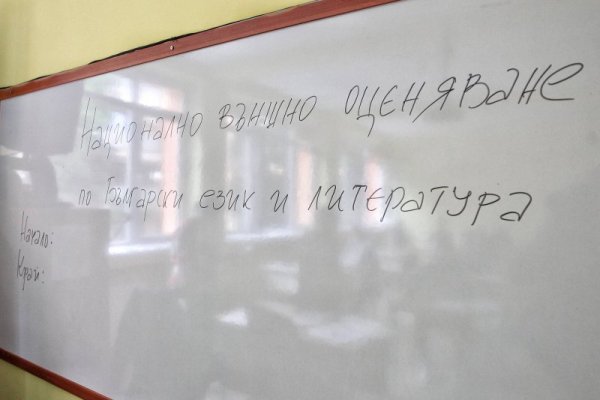 Национално външно оценяване
по Български език и литература
Начало:
Край: